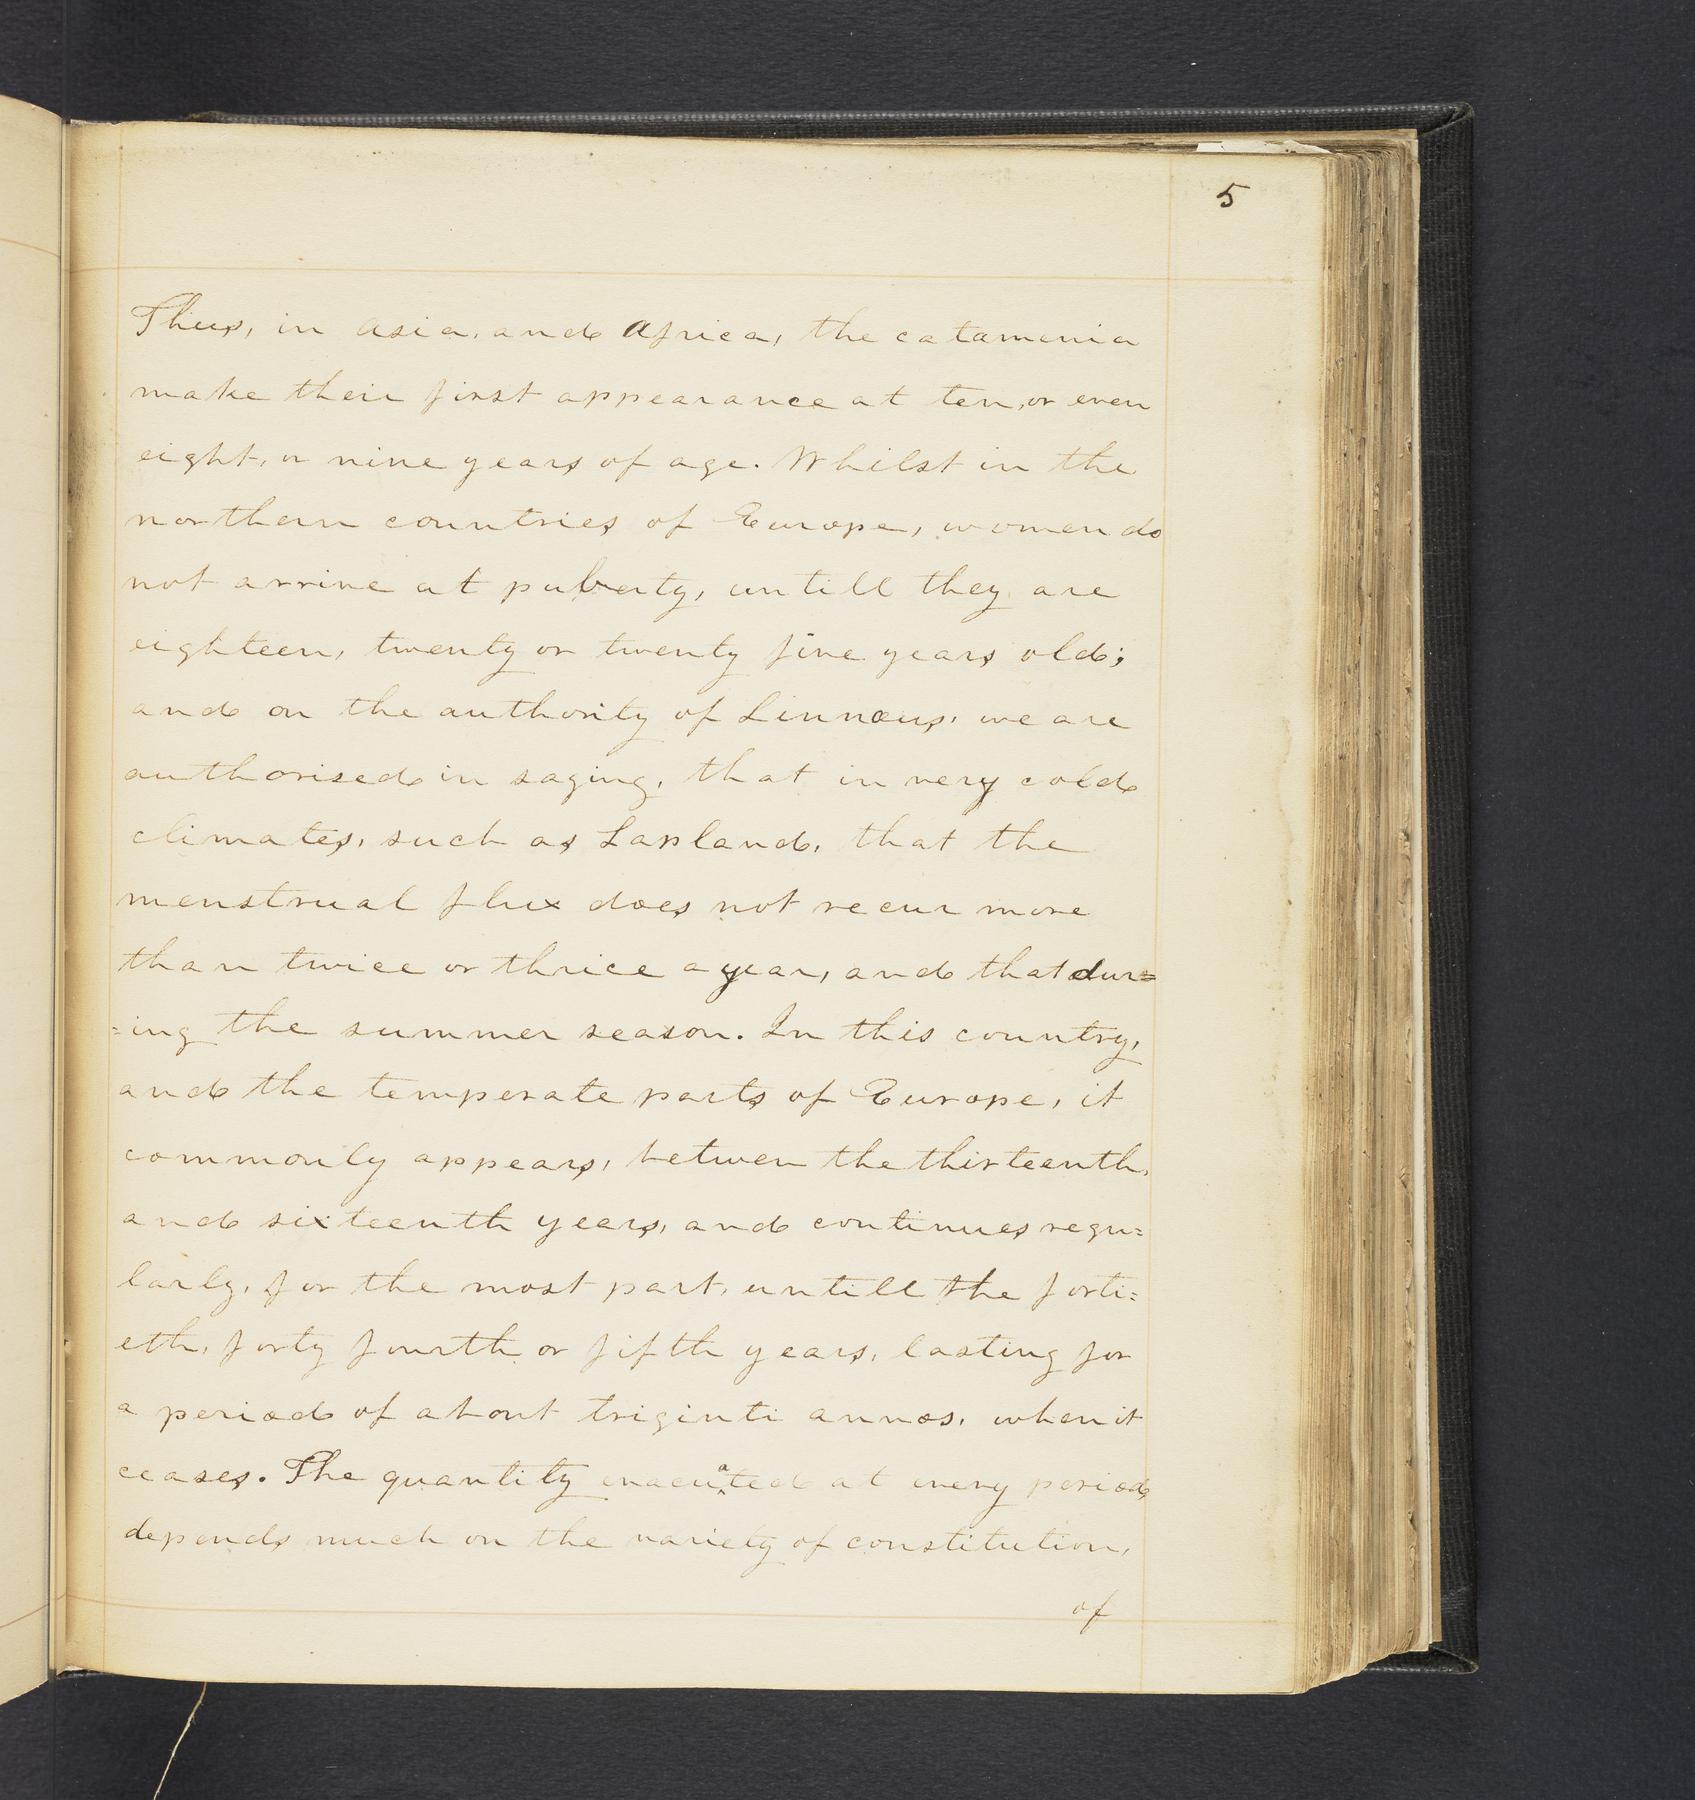 5
Thus, in Asia, and Africa, the catamenia
make their first appearance at ten, or even
eight, or nine years of age. Whilst in the
northern countries of Europe, women do
not arrive at puberty, untill they are
eighteen, twenty or twenty five years old;
and on the authority of Linnæus, we are
authorised in saying, that in very cold
climates, such as Lapland, that the
menstrual flux does not recur more
than twice or thrice a year, and that dur=
=ing the summer season. In this country,
and the temperate parts of Europe, it
commonly appears, between the thirteenth,
and sixteenth years, and continues regu=
larly, for the most part, untill the forti=
eth, forty fourth or fifth years, lasting for
a period of about triginti annos, when it
ceases. The quantity evacuated at every period,
depends much on the variety of constitution,
of